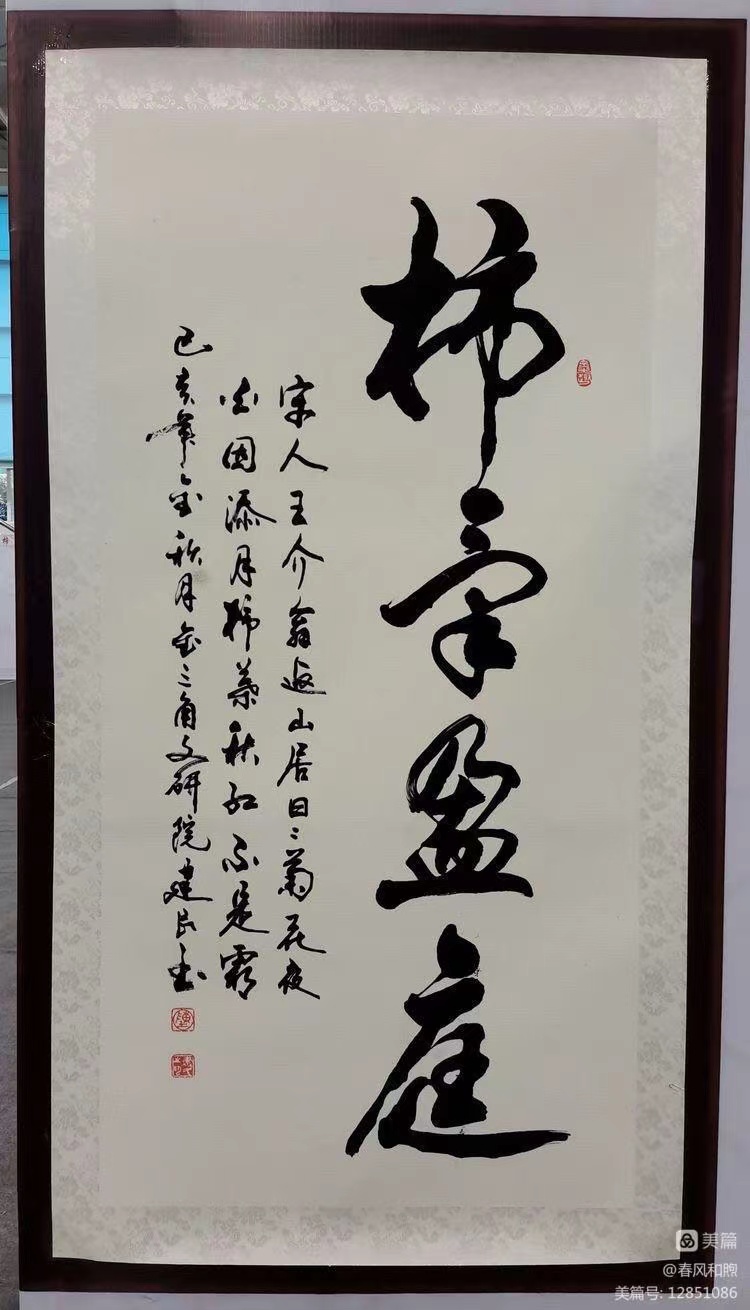 柿氣盈庭
宋人王介翁返山居曰：菊花夜
白因添月柿葉秋红不是霜
己亥年金秋月金三角文研院建民書
美篇
@春风和煦
美篇号: 12851086